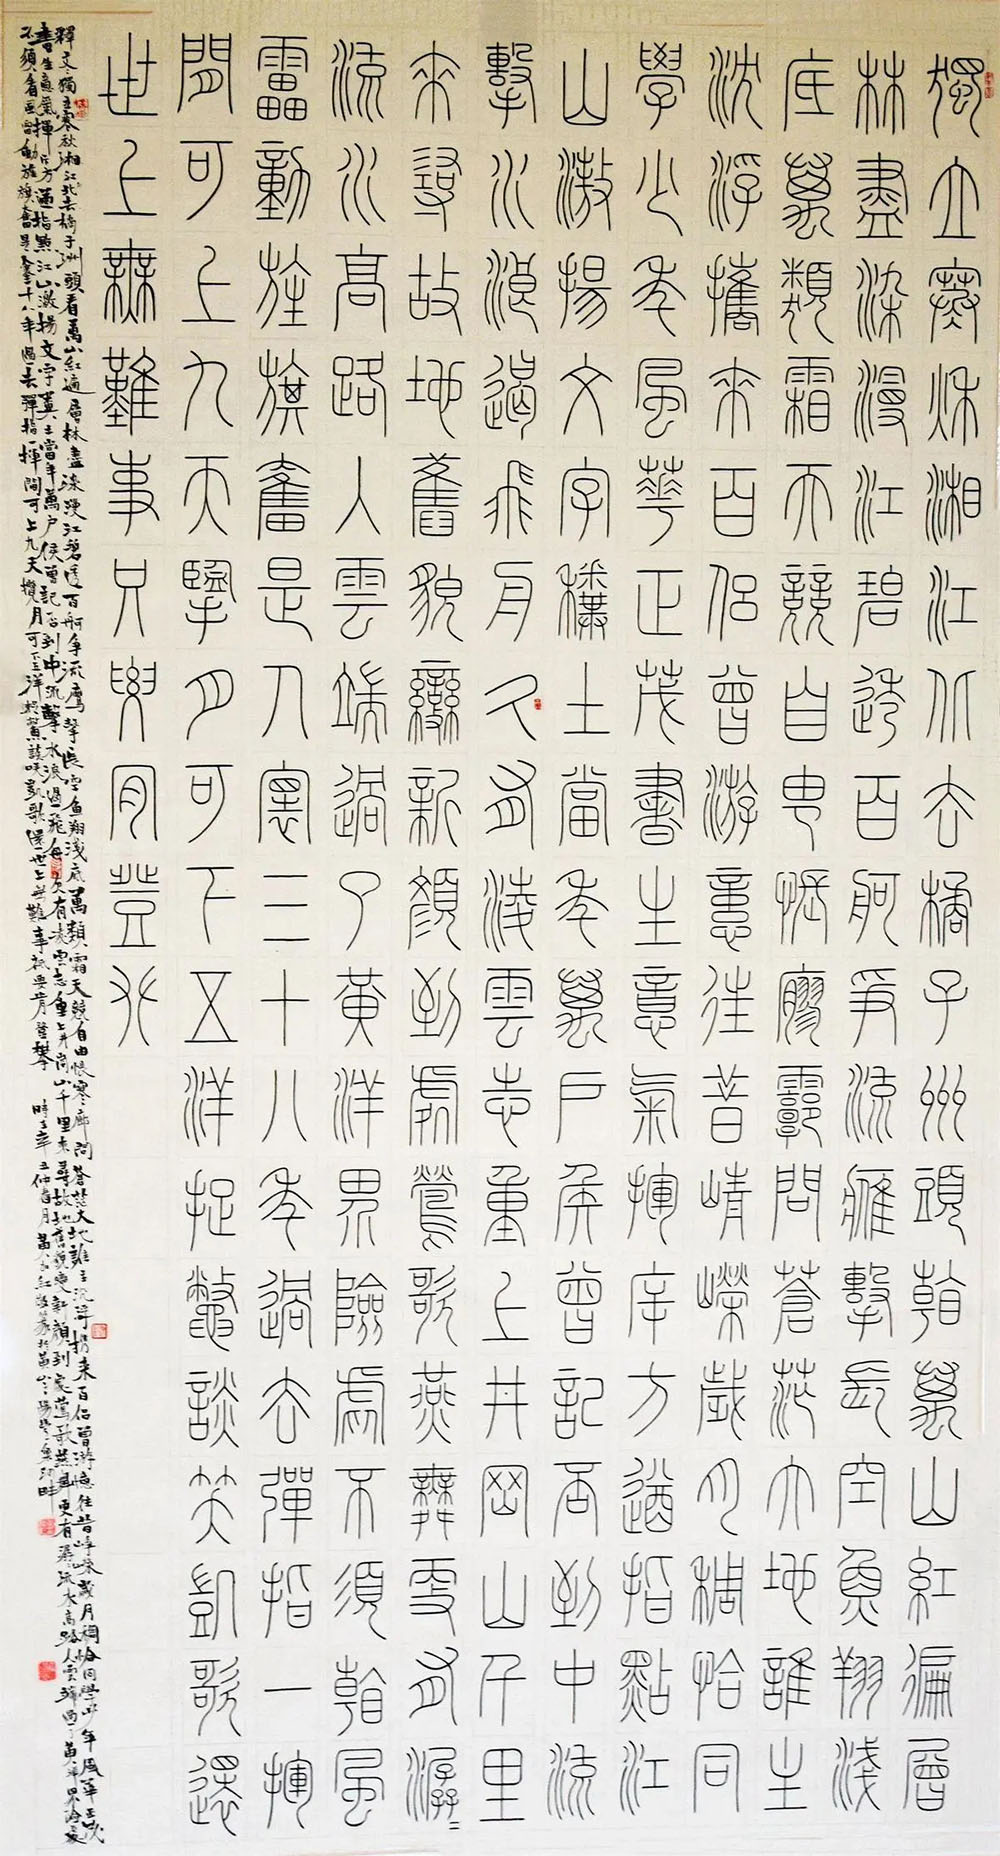 獨立寒秋湘江北去橘子州頭看萬山紅遍層
林盡染漫江碧透百舸爭流雁擊長空魚翔淺
底萬類霜天競自由悵廖廓問蒼茫大地誰主
沈浮攜來百侶曾游意往昔崢嶸歲月稠恰同
學少年風華正茂書生意氣揮斥方遒指點江
山激揚文字糞土當年萬戶侯曾記否到中流
擊水浪遏飛舟久有凌雲志重上井岡山千里
來尋故地舊貌變新顏到處鶯歌燕舞更有潺〻
流水高路入雲端過了黃洋界險處不須看風
雷動旌旗奮是人寰三十八年過去彈指一揮
間可上九天攬月可下五洋捉鱉談笑凱歌還
世上無難事只要肯登攀
釋文獨立寒秋湘江北去橘子洲頭看萬山紅遍層林盡染漫江碧透百舸爭流鷹擊長空魚翔淺底萬類霜天競自由悵寥廓問蒼茫大地誰主沉浮攜來百侶曾游憶往昔崢嶸歲月稠恰同學少年風華正茂
書生意氣揮斥方遒指點江山激揚文字糞土當年萬戶侯曾記否到中流擊水浪遏飛舟久有凌雲志重上井岡山千里來尋故地舊貌變新顏到處鶯歌燕舞更有潺潺流水高路入雲端過了黃洋界險處
不須看風雷動旌旗奮是人寰三十八年過去彈指一揮間可上九天攬月可下五洋捉鱉談笑凱歌還世上無難事祇要肯登攀 時在辛丑仲春月